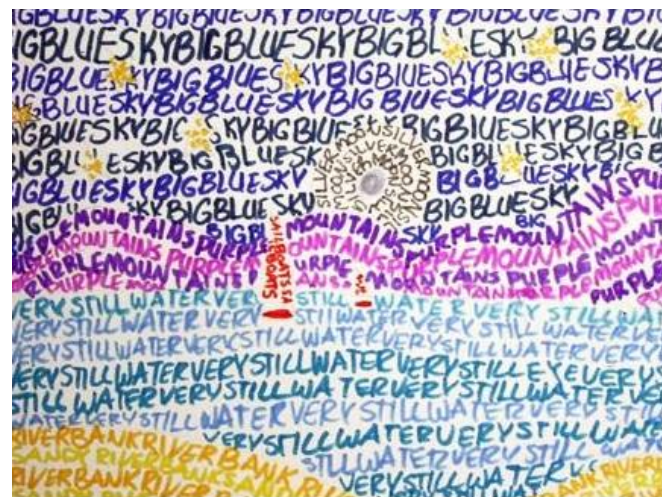 BIGBLUESKYBIGBLUESKYBIGBLUESKYBIGBLUESKY
IGBLUESKYBIGBLUESKYBIGBLUESKYBIG BLUE
BIGBLUESKYBIG BLUESKYBIGBLUESKYBIGBLUESKYBIG
BLUESKYBIGBLUESKYBIG BLUESKYBIGBLUES
BIGBLUESKYBIGBLUESKYBIGBLUE
BIGBLUESKYBIGBLU
BIGBLUESKYBIGBLUESK
ESKYBIGBLUESKY BIG B
BIGBLUESKYBIGBLUESKY
BIGBLUESKYBIG
BIGBLU
SKYBIGBLUESKY
BIGBLUESKY
BIG
SKY
SILVERMOONSILVERMOON
PURPLEMOUNTAINS PURPLE MOUNTAINS PURPLEMOUNTAINS
MOUNTAINS PURPLE MOUNTAINS PURPLEMOUNTAINS PURPLE
PURPLEMOUNTAINS PURPLE MOUNTAINS PURPLE MOUNT
PURPLE MOUNTAINS
PURPLE
SAILBOATS
BOATS
VERYSTILLWATERVERY STILL WATER VERY STILL WATE
VERYSTILLWATER VERY STILLWATER VERY STILL WATER VE
VERYSTILLWATERVERYSTILLWATER VERYSTILL WATERVERY
VERYSTILLWATERVERYSTILLWATER VERYSTILL EYEVERYS
STILLWATERVERYSTILLWATERVERYSTILLWATER VER
WATERVERY STILLWATERVERYSTILLWATERVERY STILL
RIVERBANKRIVER
VERYSTILLWATERVERYSTILLWATE
SANDY RIVERBANK
STILLWATERVERYSTILL WAT
RIVERBANKRIVERBANK
VERYSTILLWATER
BANK RIVER